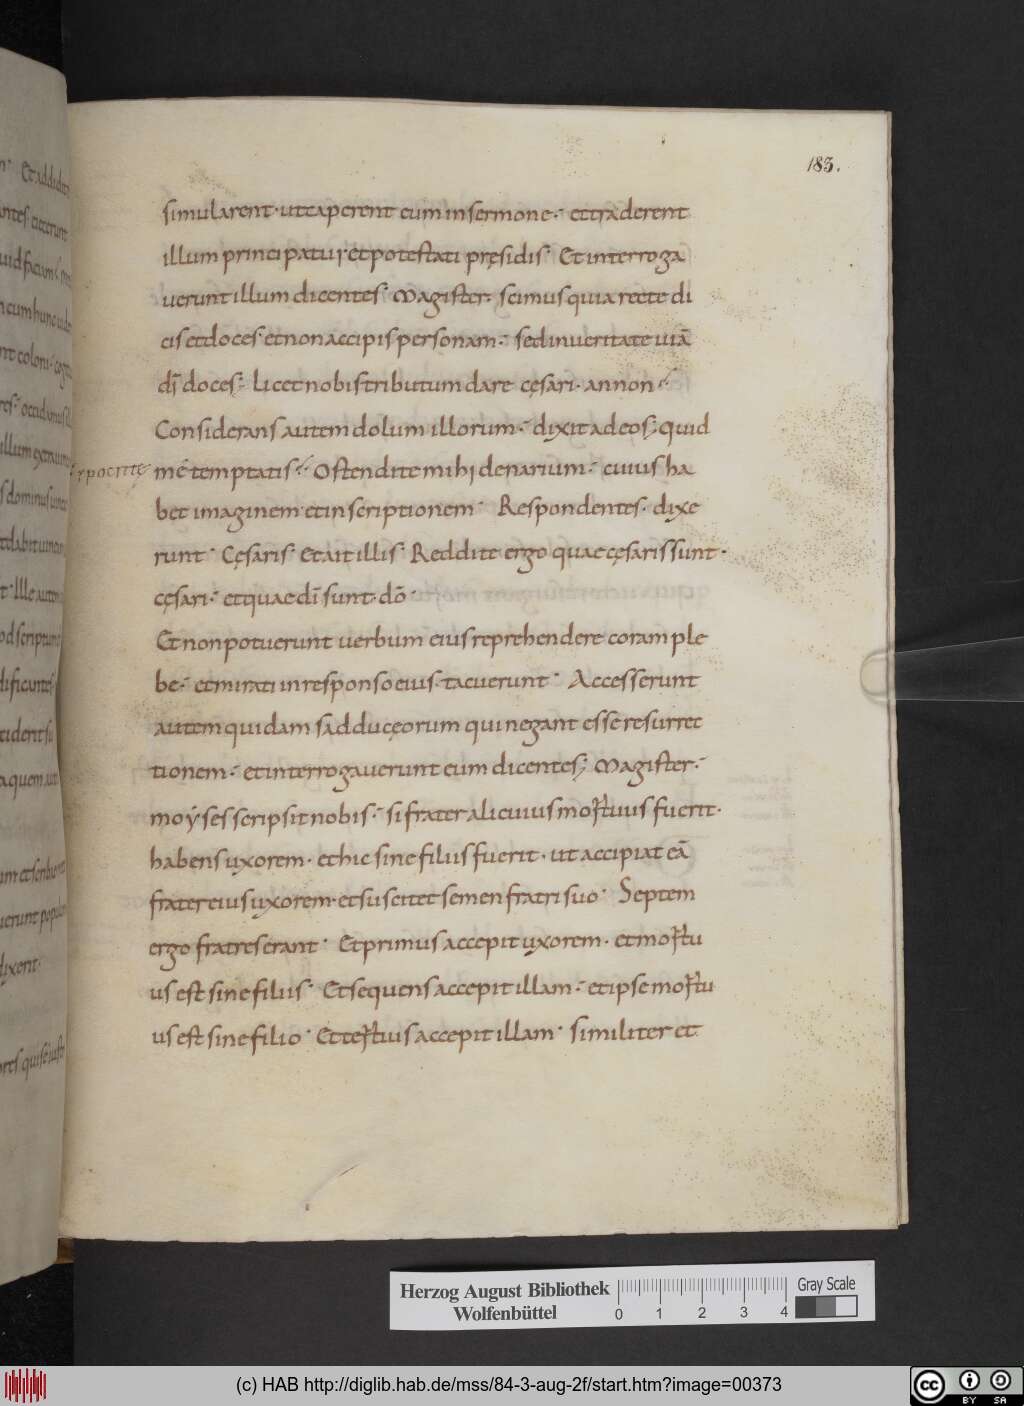 183.
simularent· ut caperent eum in sermone·- et traderent
illum principatui et potestati pręsidis· Et interroga
uerunt illum dicentes· Magister·- scimus quia recte di
cis et doces et non accipis personam·- sed in ueritate uiā
dī doces;- licet nobis tributum dare cęsari· an non·/
Considerans autem dolum illorum·- dixit ad eos; quid
me temptatis·/ Ostendite mihi denarium·- cuius ha
ypocritę
bet imaginem et inscriptionem· Respondentes· dixe
runt· Cęsaris· Et ait illis· Reddite ergo quae cęsaris sunt·
cęsari·- et quae dī sunt· dō·
Et non potuerunt uerbum eius reprehendere coram ple
be·- et mirati in responso eius· tacuerunt· Accesserunt
autem quidam sadducęorum qui negant esse resurrec
tionem·- et interrogauerunt eum dicentes; Magister·-
moyses scripsit nobis·- si frater alicuius mortuus fuerit·
habens uxorem· et hic sine filiis fuerit· ut accipiat eā
frater eius uxorem· et suscitet semen fratri suo· Septem
ergo fratres erant· Et primus accepit uxorem· et mortu
us est sine filiis· Et sequens accepit illam·- et ipse mortu
us est sine filio· Et tertius accepit illam· similiter et
Herzog August Bibliothek
Wolfenbüttel
0 1 2 3 4
Gray Scale
(c) HAB http://diglib.hab.de/mss/84-3-aug-2f/start.htm?image=00373
cc BY SA